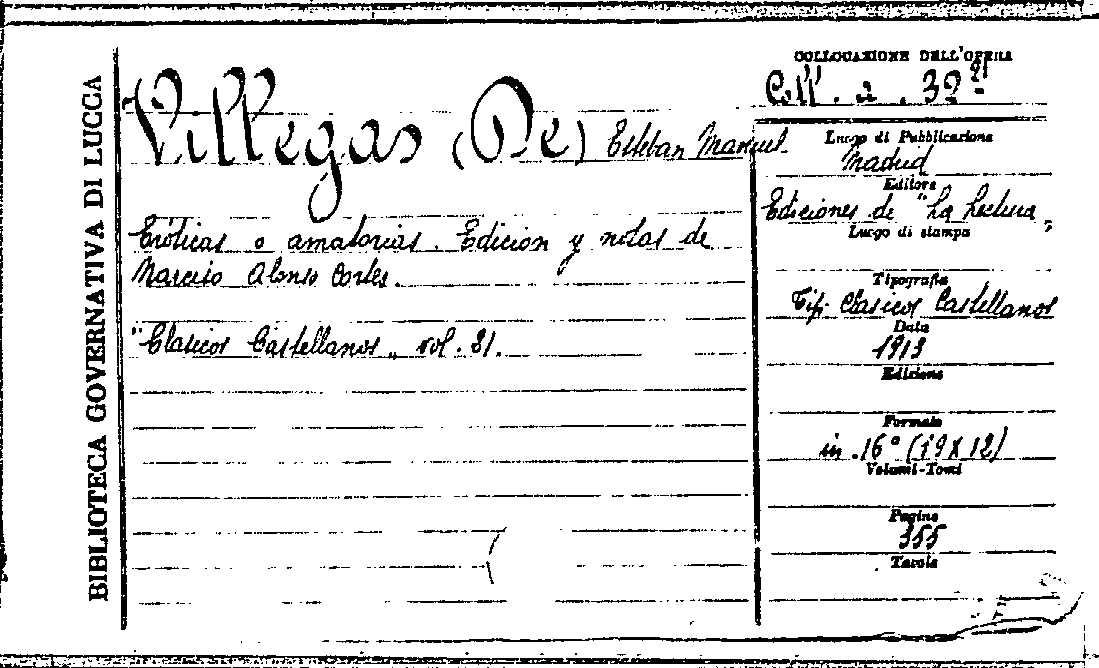 BIBLIOTECA GOVERNATIVA DI LUCCA
Villegas (De) Esteban Manuel.
Eróticas o amatorias. Edicion y notas de
Narciso Alonso Cortes.
"Clasicos Castellanos" vol. 21.
COLLOCAZIONE DELL'OPERA
Coll. a. 32
Luogo di Pubblicazione
Madrid
Editore
Ediciones de "La Lectura"
Luogo di stampa
Tipografia
Tip. Clasicos Castellanos
Data
1913
Edizione
Formato
in .16° (19 X 12)
Volumi-Tomi
Pagine
355
Tavole